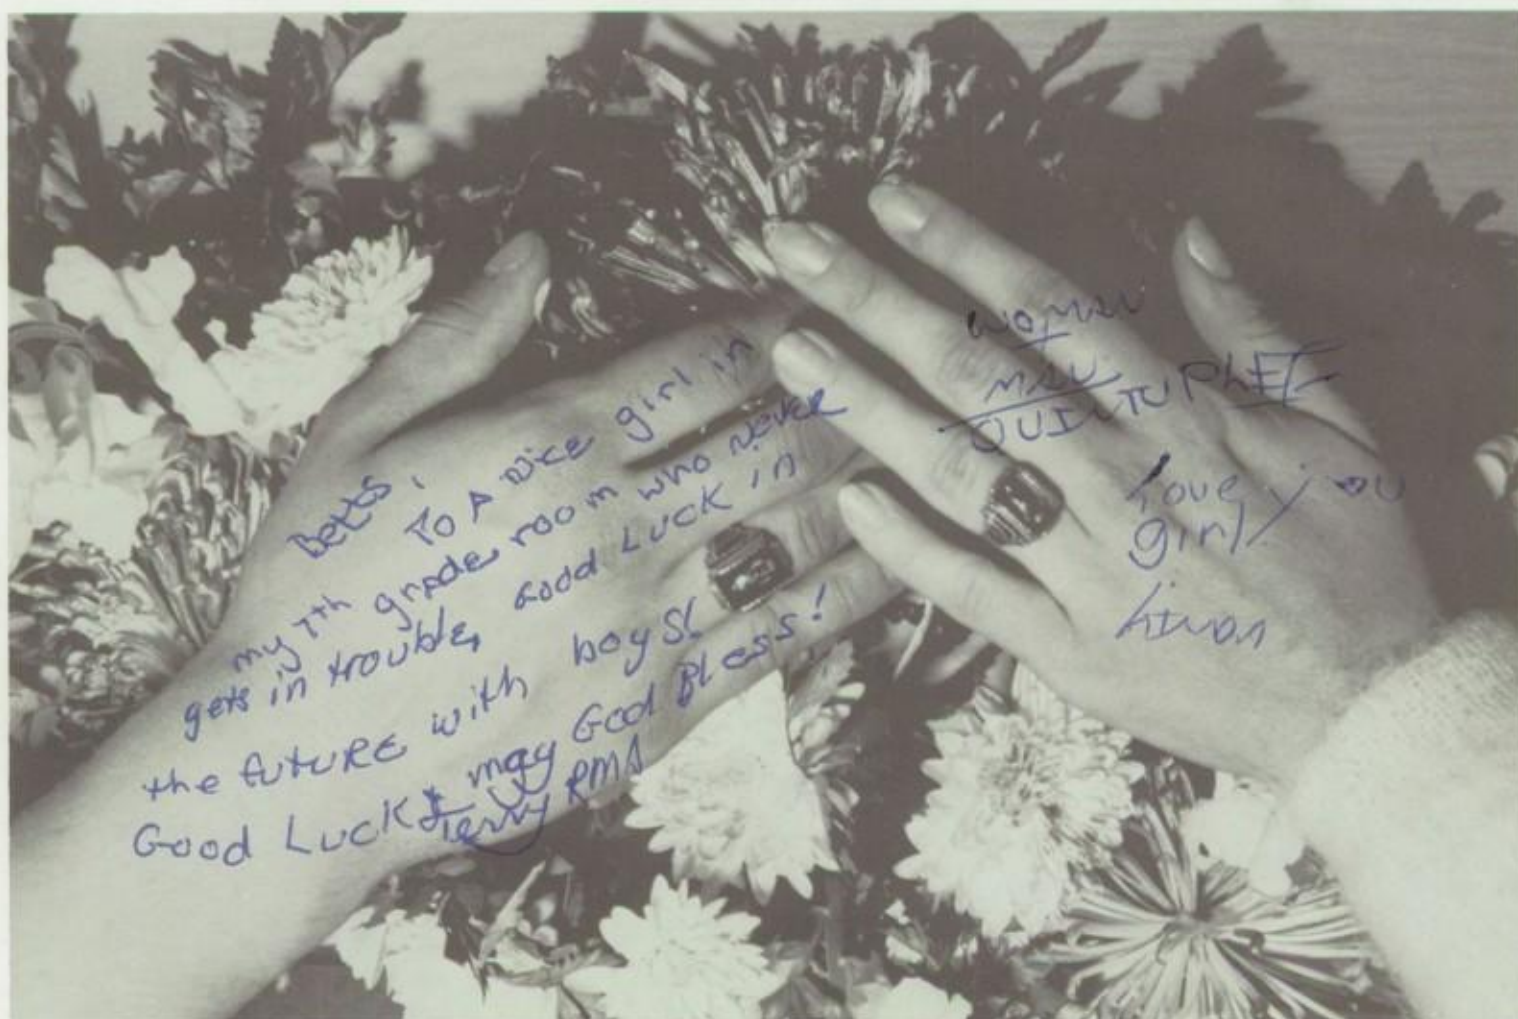 Betts,
To A Nice girl in
my 7th grade room who never
gets in trouble, Good Luck in
the future with boys!
Good Luck & may God Bless!
Terry RMA
Woman
Man
QUINTUPLET
Love you
girl!